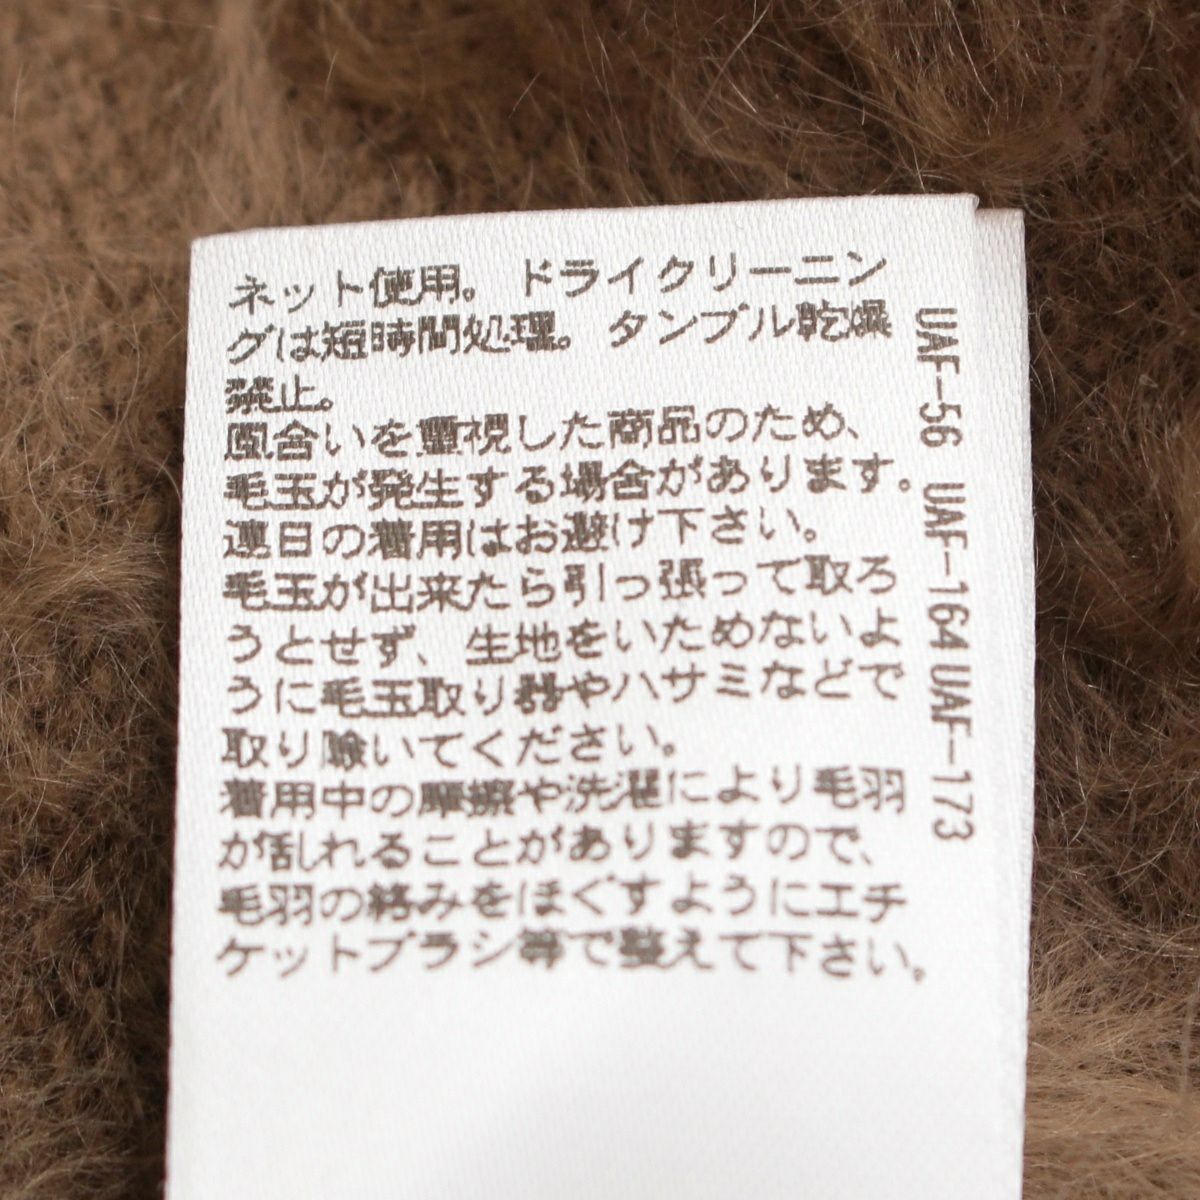 ネット使用。ドライクリーニン
グは短時間処理。タンブル乾燥
禁止。
風合いを重視した商品のため、
毛玉が発生する場合があります。
連日の着用はお避け下さい。
毛玉が出来たら引っ張って取ろ
うとせず、生地をいためないよ
うに毛玉取り器やハサミなどで
取り除いてください。
着用中の摩擦や洗濯により毛羽
が乱れることがありますので、
毛羽の絡みをほぐすようにエチ
ケットブラシ等で整えて下さい。
UAF-56 UAF-164 UAF-173